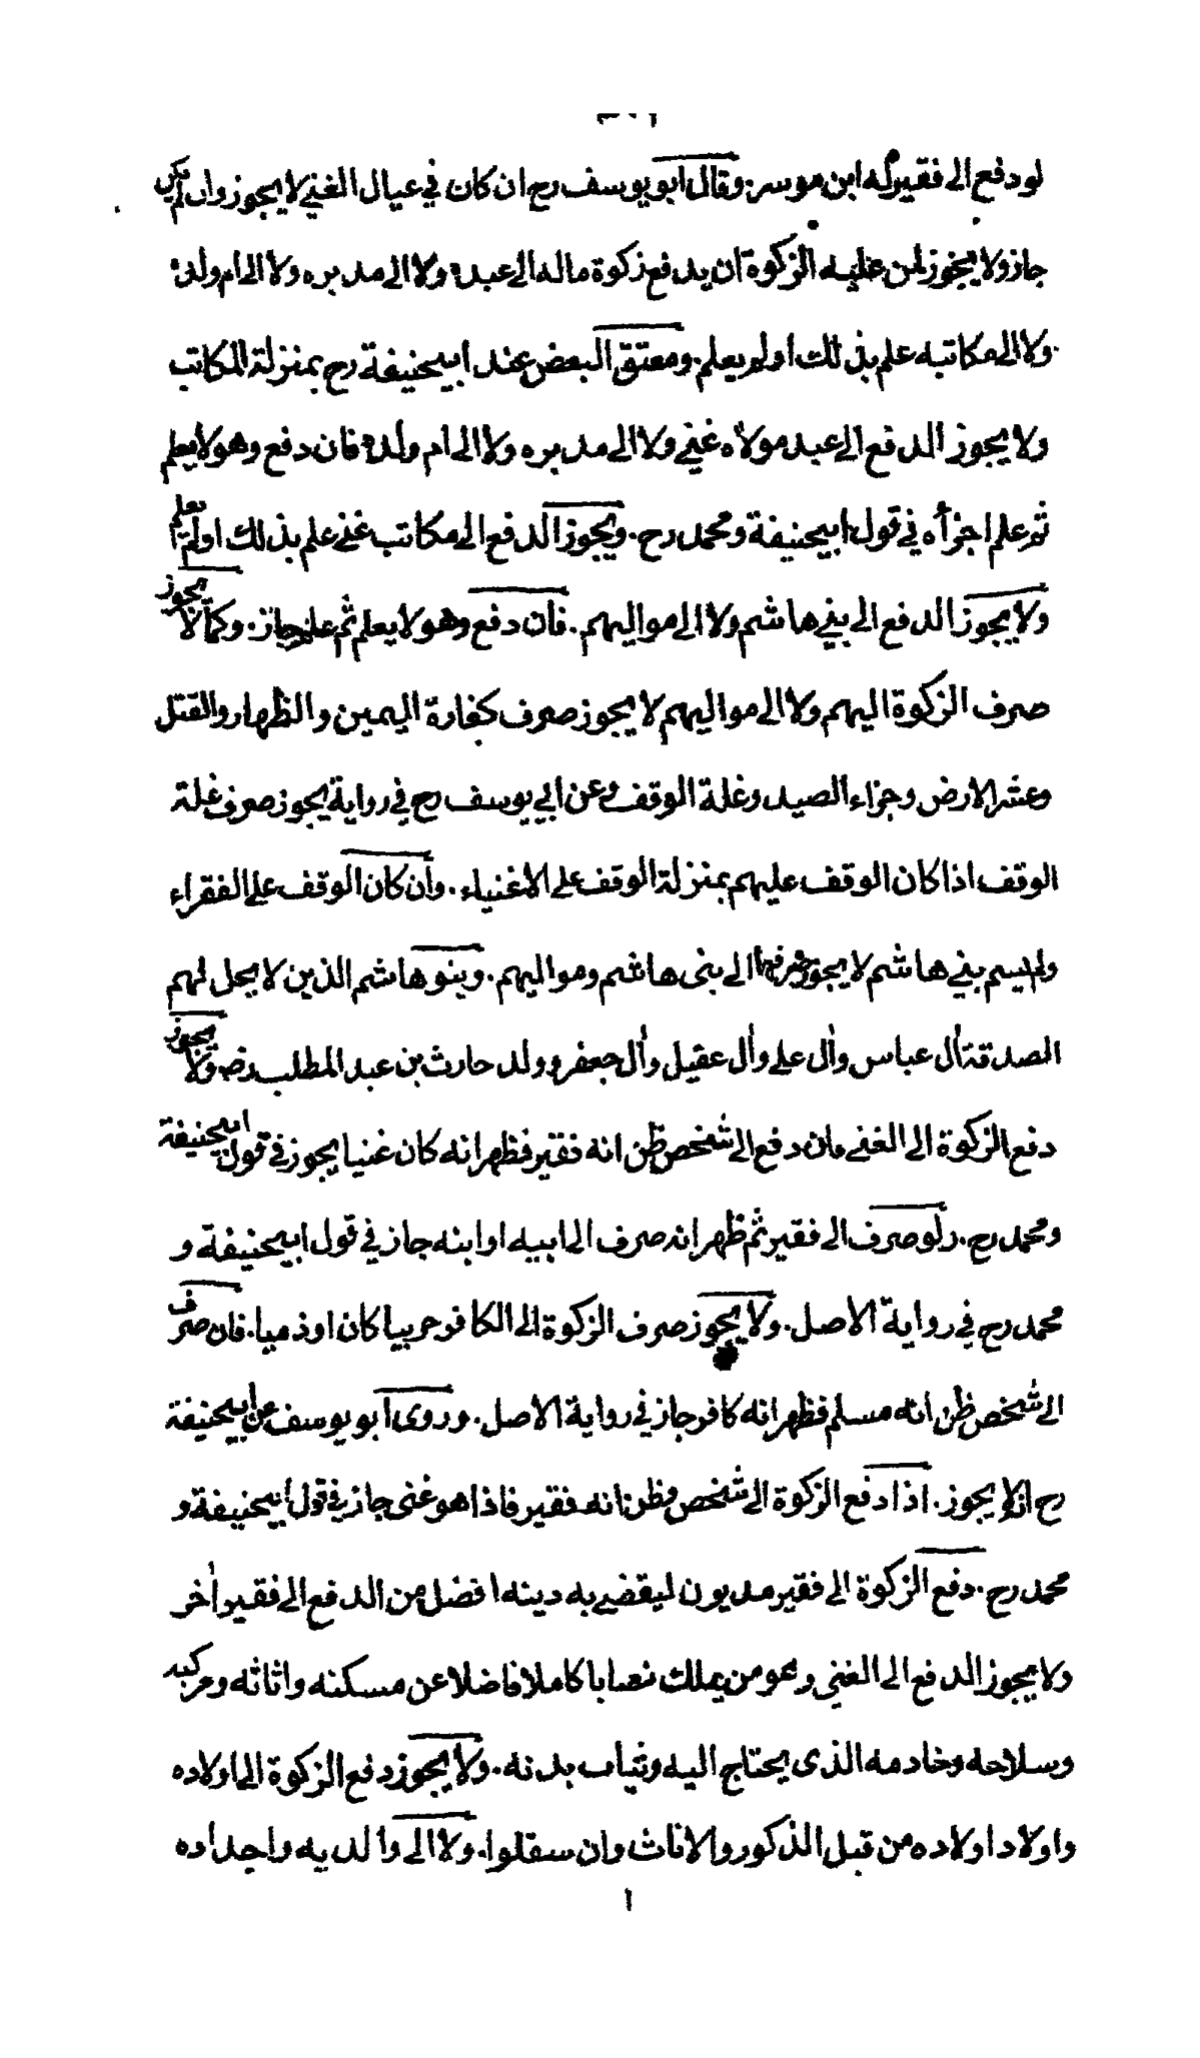 لو دفع الى فقير له ابن موسر. وقال ابو يوسف رح ان كان في عيال الغني لا يجوز وان لم يكن
جاز ولا يجوز لمن عليه الزكوة ان يدفع زكوة ماله الى عبده ولا الى مدبره ولا الى ام ولده
ولا الى مكاتبه علم بذلك او لم يعلم. ومعتق البعض عند ابيحنيفة رح بمنزلة المكاتب
ولا يجوز الدفع الى عبد مولاه غني ولا الى مدبره ولا الى ام ولده فان دفع وهو لا يعلم
ثم علم اجزأه في قول ابيحنيفة ومحمد رح. ويجوز الدفع الى مكاتب غني علم بذلك او لم يعلم
ولا يجوز الدفع الى بني هاشم ولا الى مواليهم. فان دفع وهو لا يعلم ثم علم جاز. وكما لا يجوز
صرف الزكوة اليهم ولا الى مواليهم لا يجوز صرف كفارة اليمين والظهار والقتل
وعشر الارض وجزاء الصيد وغلة الوقف وعن ابي يوسف رح في رواية يجوز صرف غلة
الوقف اذا كان الوقف عليهم بمنزلة الوقف على الاغنياء. وان كان الوقف على الفقراء
ولم يسم بني هاشم لا يجوز صرفها الى بنى هاشم ومواليهم. وبنو هاشم الذين لا يحل لهم
الصدقة أل عباس وأل علي وأل عقيل وأل جعفر وولد حارث بن عبد المطلب رض ولا يجوز
دفع الزكوة الى الغني فان دفع الى شخص ظن انه فقير فظهر انه كان غنيا يجوز في قول ابيحنيفة
ومحمد رح. ولو صرف الى فقير ثم ظهر انه صرف الى ابيه او ابنه جاز في قول ابيحنيفة و
محمد رح في رواية الاصل. ولا يجوز صرف الزكوة الى الكافر حربيا كان او ذميا. فان صرف
الى شخص ظن انه مسلم فظهر انه كافر جاز في رواية الاصل. وروى ابو يوسف عن ابيحنيفة
رح انه لا يجوز. اذا دفع الزكوة الى شخص وظن انه فقير فاذا هو غنى جاز في قول ابيحنيفة و
محمد رح. دفع الزكوة الى فقير مديون ليقضي به دينه افضل من الدفع الى فقير أخر
ولا يجوز الدفع الى الغني وهو من يملك نصابا كاملا فاضلا عن مسكنه واثاثه ومركبه
وسلاحه وخادمه الذى يحتاج اليه وثياب بدنه. ولا يجوز دفع الزكوة الى اولاده
واولاد اولاده من قبل الذكور والاناث وان سفلوا. ولا الى والديه واجداده
ا